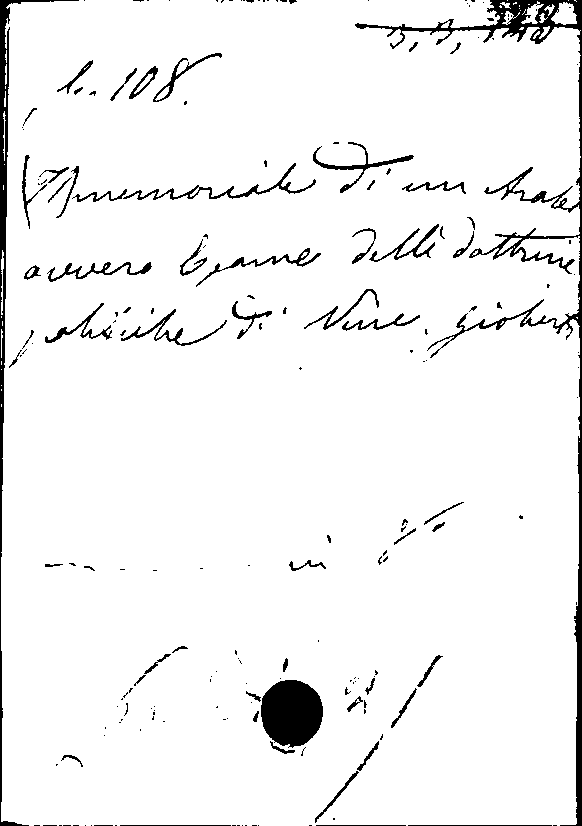 3, 3,
b. 108.
(Memoriale di un Arabo
ovvero Esame delle dottrine
politiche di Vinc. Giobert
in 8°